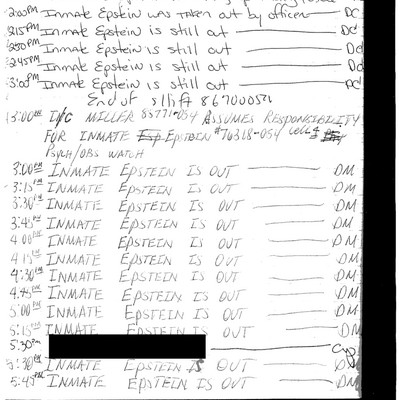 2:00PM Inmate Epstein was taken out by officer DC
2:15PM Inmate Epstein is still out DC
2:30PM Inmate Epstein is still out DC
2:45PM Inmate Epstein is still out DC
3:00PM Inmate Epstein is still out DC
End of shift
3:00PM I/C MILLER 85771-054 ASSUMES RESPONSIBILITY
FOR INMATE EPSTEIN #76318-054 CELL 4
PSYCH/OBS WATCH
3:00PM INMATE EPSTEIN IS OUT DM
3:15PM INMATE EPSTEIN IS OUT DM
3:30PM INMATE EPSTEIN IS OUT DM
3:45PM INMATE EPSTEIN IS OUT DM
4:00PM INMATE EPSTEIN IS OUT DM
4:15PM INMATE EPSTEIN IS OUT DM
4:30PM INMATE EPSTEIN IS OUT DM
4:45PM INMATE EPSTEIN IS OUT DM
5:00PM INMATE EPSTEIN IS OUT DM
5:15PM INMATE EPSTEIN IS OUT DM
5:30PM
5:30PM INMATE EPSTEIN IS OUT DM
5:45PM INMATE EPSTEIN IS OUT DM